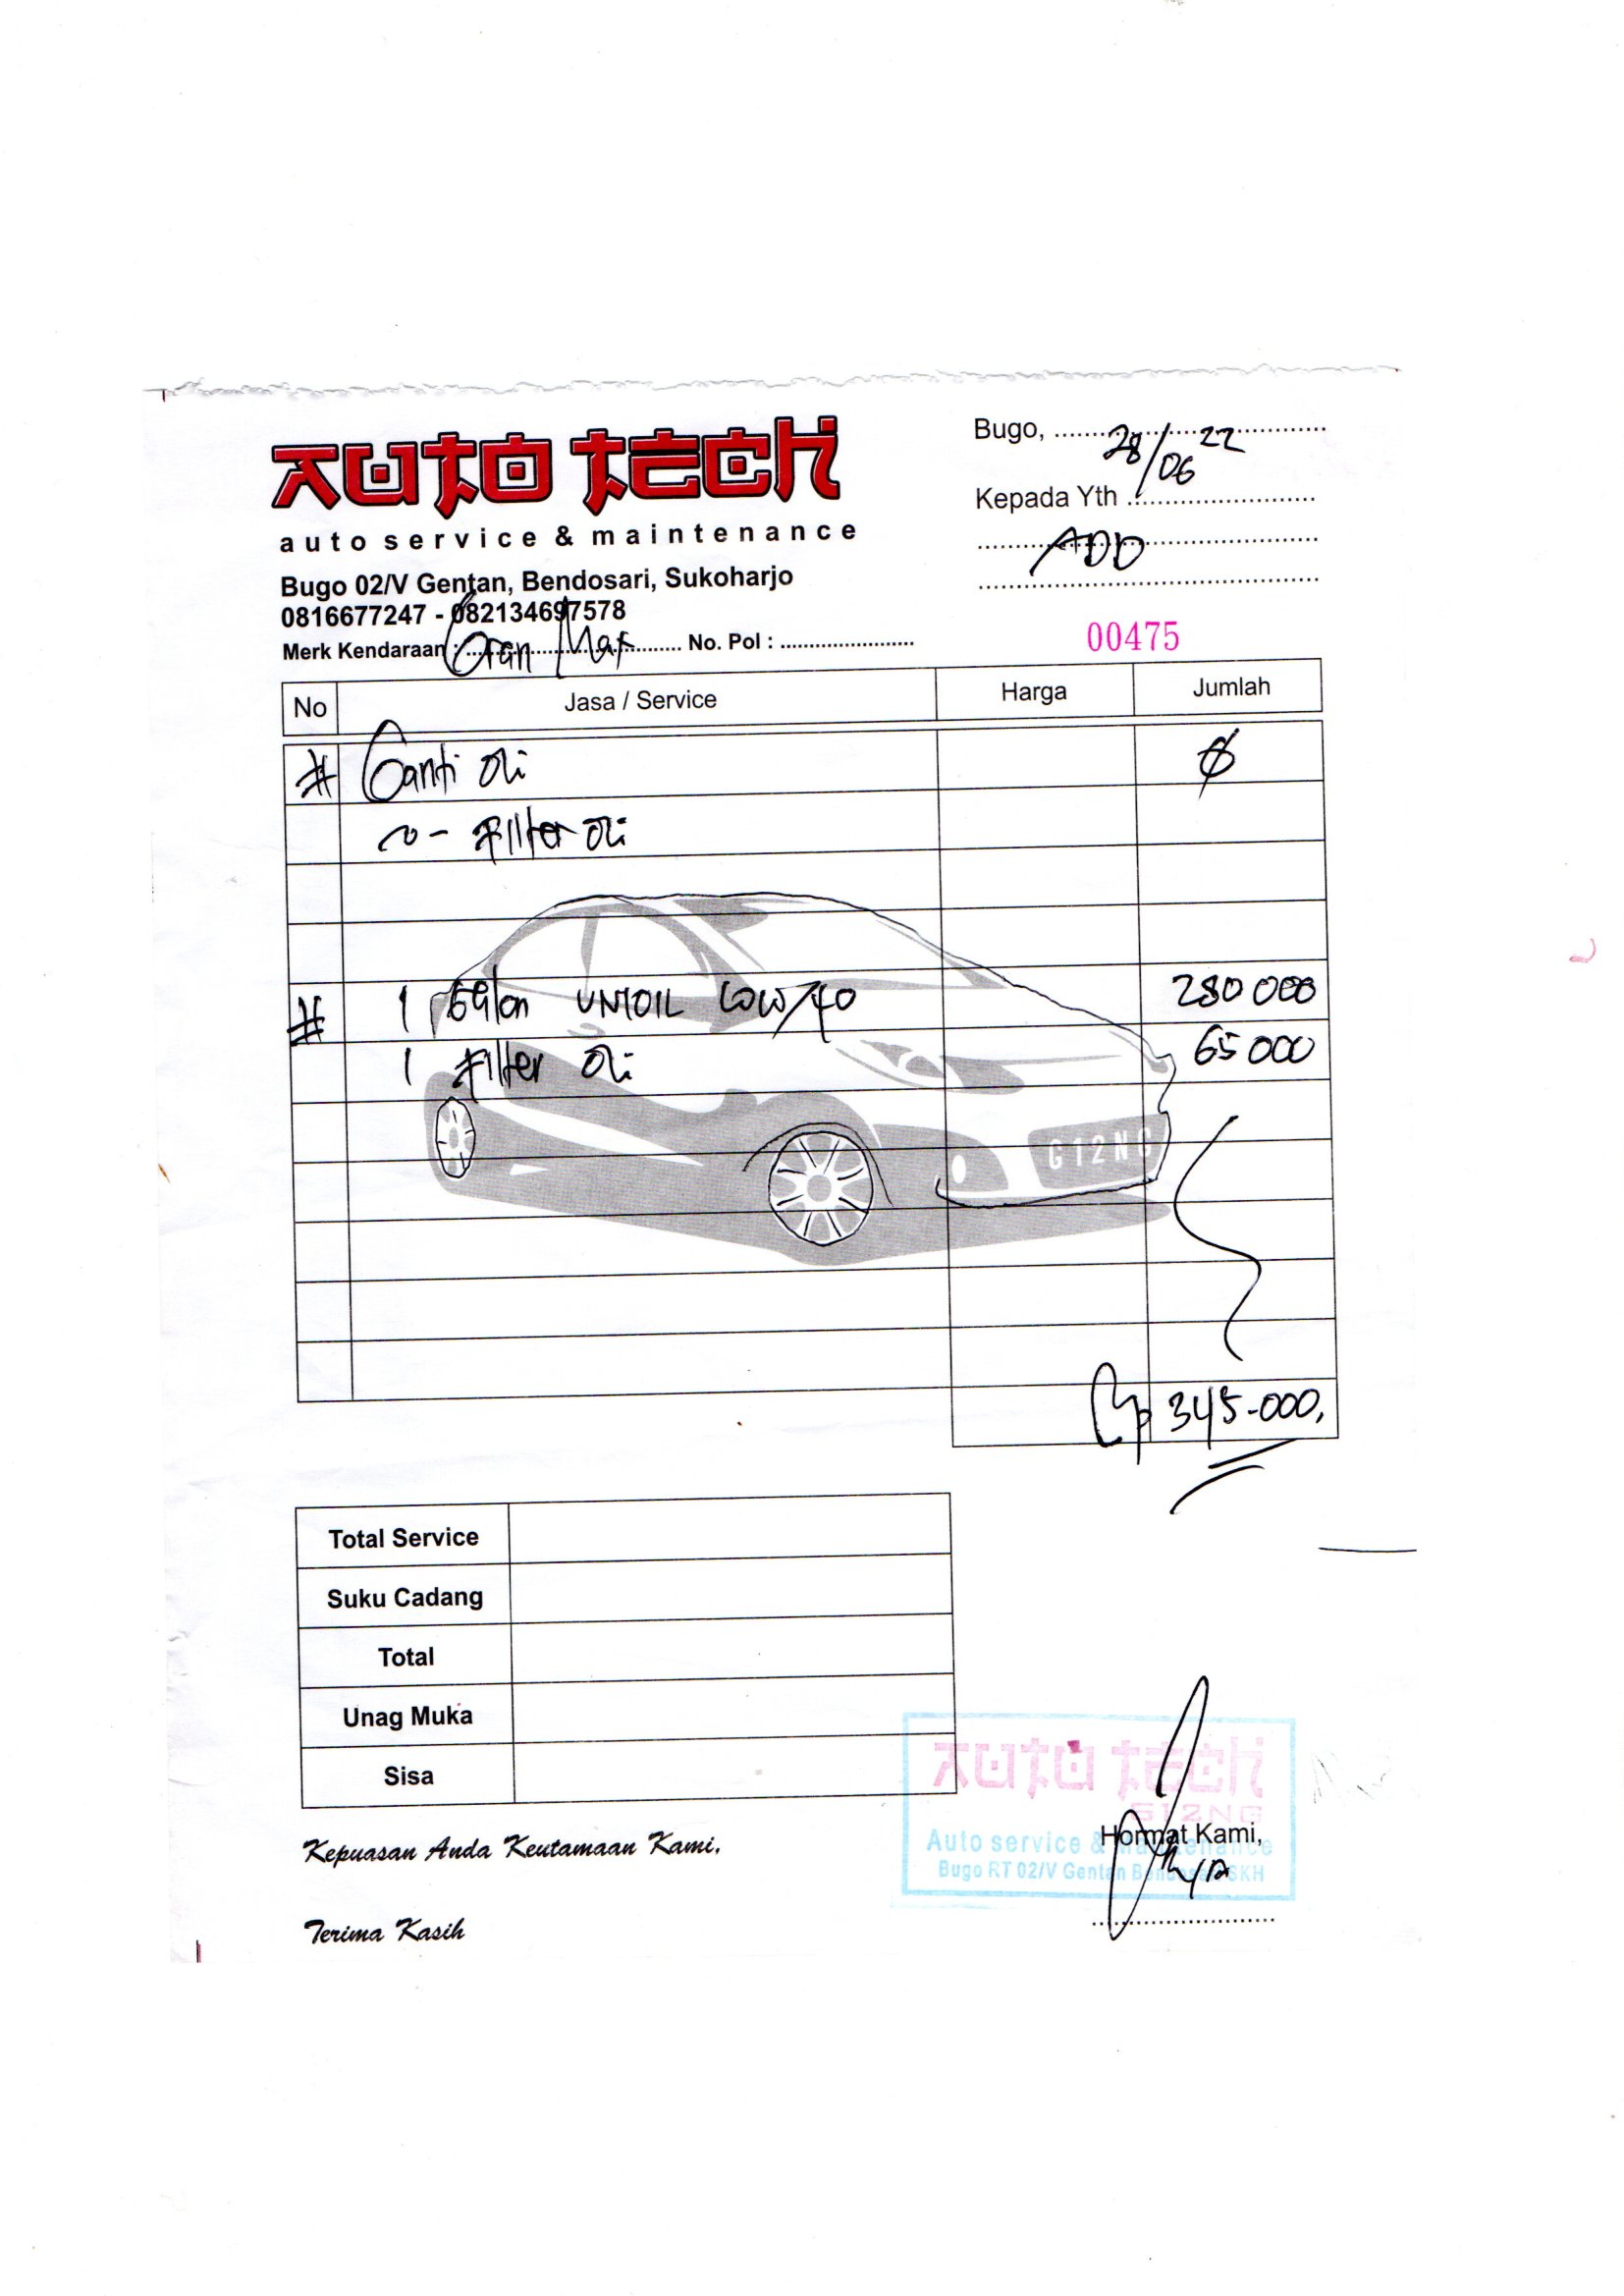 AUTO TECH
auto service & maintenance
Bugo 02/V Gentan, Bendosari, Sukoharjo
0816677247 - 082134697578
Merk Kendaraan : Gran Max No. Pol :
Bugo, 28/06 22
Kepada Yth
ADD
00475
No Jasa / Service Harga Jumlah
# Ganti Oli Ø
~ - Filter Oli
# 1 Galon UNIOIL 10W/40 280 000
1 Filter Oli 65 000
G12NG
Rp 345-000,
Total Service
Suku Cadang
Total
Unag Muka
Sisa
Kepuasan Anda Keutamaan Kami,
Terima Kasih
AUTO TECH
G12NG
Auto service & Maintenance
Bugo RT 02/V Gentan Bendosari SKH
Hormat Kami,